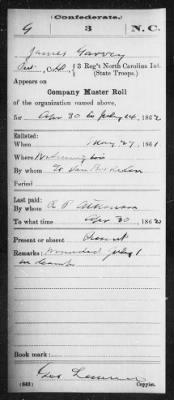 (Confederate.)
G 3 N.C.
James Garvey
Pvt, Co. , 3 Reg't North Carolina Inf.
(State Troops.)
Appears on
Company Muster Roll
of the organization named above,
for Apr 30 to July 24, 1862
Enlisted:
When May 27, 1861
Where
By whom
Period
Last paid:
By whom R. P. Atkinson
To what time Apr 30 1862
Present or absent Absent
Remarks: Wounded July 1
Book mark:
(642) Copyist.